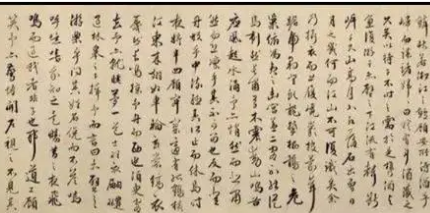 鱸顧安所得酒乎
歸而謀諸婦婦曰我有斗酒藏之
久矣以待子不時之需於是攜酒與
魚復遊於赤壁之下江流有聲斷
岸千尺山高月小水落石出曾日
月之幾何而江山不可復識矣予
乃攝衣而上履巉巖披蒙茸
踞虎豹登虬龍攀棲鶻之危
巢俯馮夷之幽宮蓋二客不能從
焉劃然長嘯草木震動山鳴谷
應風起水涌予亦悄然而悲肅
然而恐凜乎其不可留也反而登
舟放乎中流聽其所止而休焉時
夜將半四顧寂寥適有孤鶴橫
江東來翅如車輪玄裳縞衣
戛然長鳴掠予舟而西也須臾客
去予亦就睡夢一道士羽衣蹁躚
過臨皋之下揖予而言曰赤壁之
遊樂乎問其姓名俛而不答嗚
呼噫嘻我知之矣疇昔之夜飛
鳴而過我者非子也耶道士顧
笑予亦驚寤開戶視之不見其